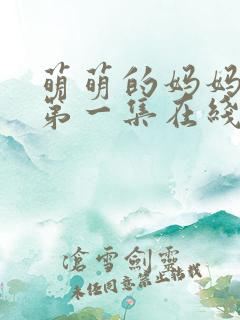 萌萌的妈妈
第一集在线
滄雪劍靈
未经同意禁止转载